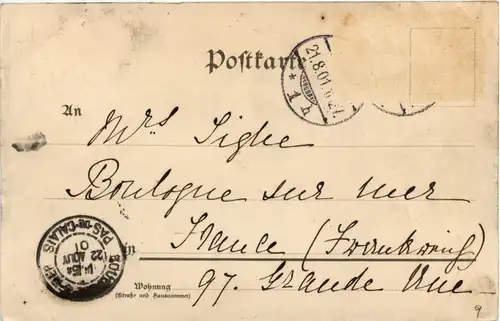 Postkarte
21.8.01.
* 1 h
An
Mrs
Boulogne sur mer
in
France (Frankreich)
97. Grande Rue
Wohnung
(Straße und Hausnummer)
PAS-DE-CALAIS
22 AOUT
01
9